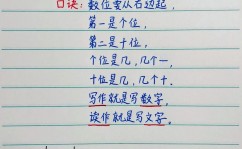 口诀：数位要从右边起，
第一是个位，
第二是十位，
个位是几，几个一，
十位是几，几个十，
写作就是写数字，
读作就是写文字。